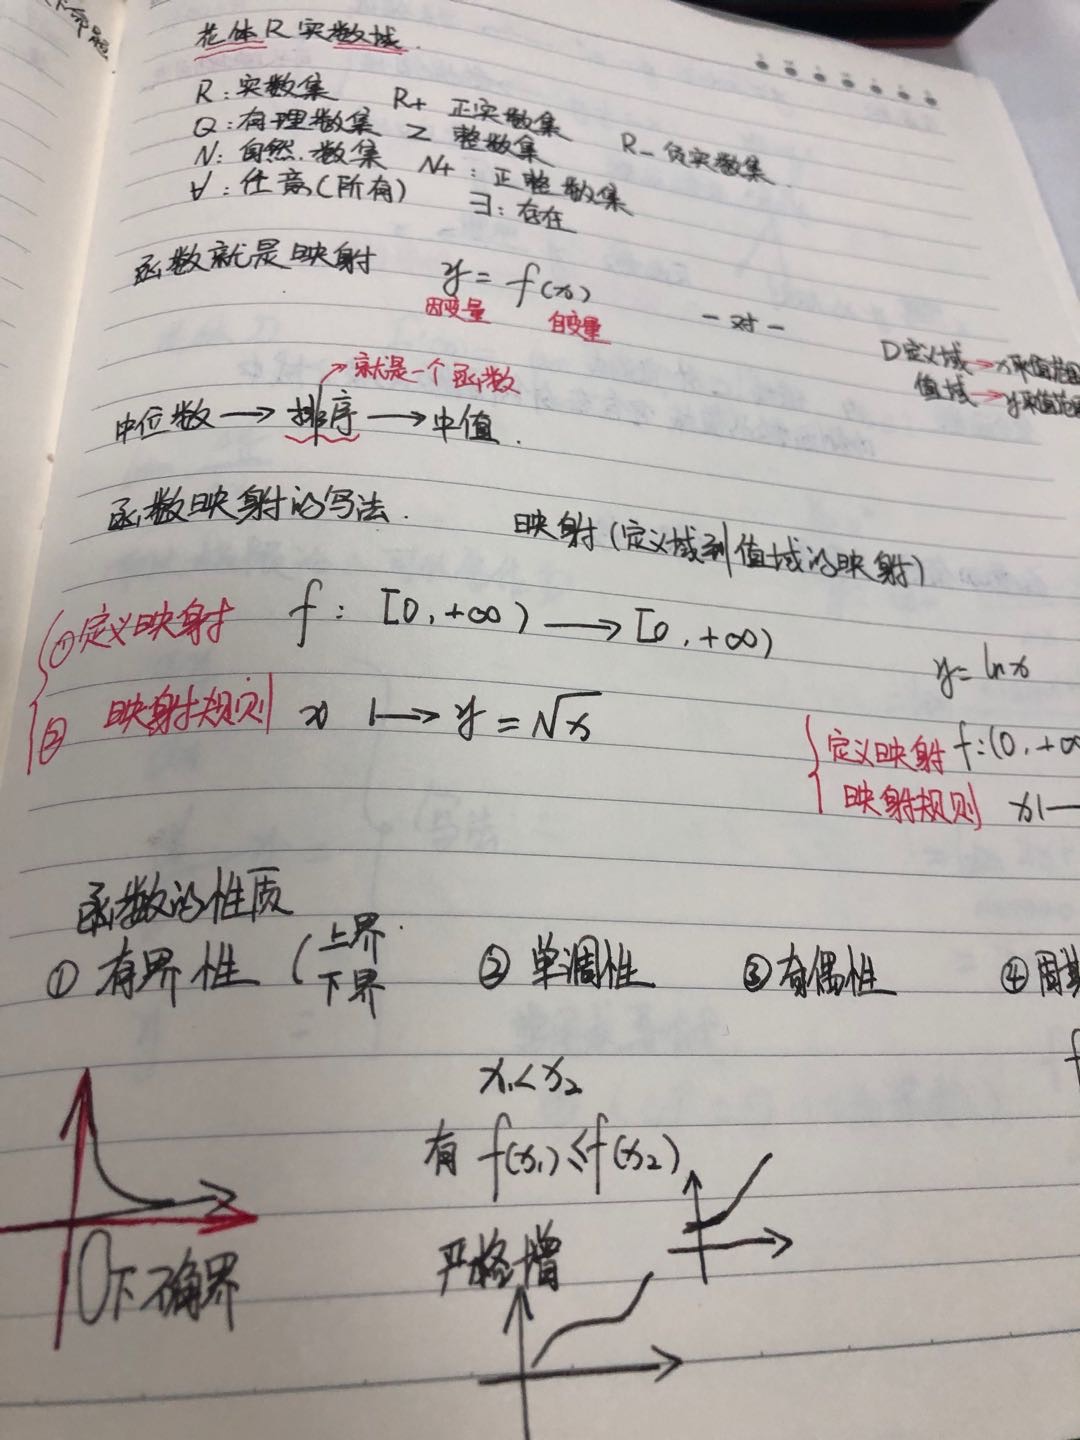 命题
花体R 实数域.
R：实数集 R+ 正实数集 R- 负实数集.
Q：有理数集 Z 整数集
N：自然数集 N+：正整数集
∀：任意(所有) ∃：存在
函数就是映射 y = f(x)
因变量 自变量
一对一
D定义域→x取值范围
值域→y取值范
→就是一个函数
中位数→排序→中值.
函数映射的写法. 映射(定义域到值域的映射)
①定义映射 f：[0,+∞)→[0,+∞)
② 映射规则 x ↦ y=√x
y=lnx
定义映射 f:(0,+∞
映射规则 x
函数的性质
①有界性 (上界.
下界
②单调性 ③奇偶性 ④周期
f
x₁<x₂
有 f(x₁)≤f(x₂)
严格增
0下确界